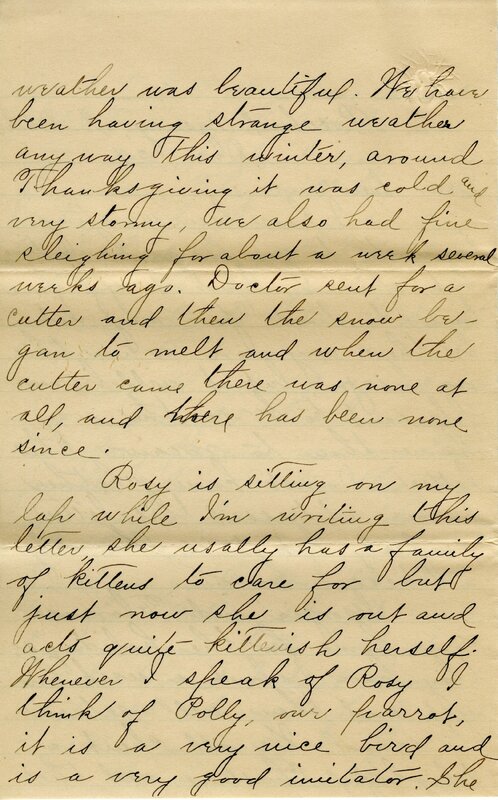 weather was beautiful. We have
been having strange weather
any way this winter, around
Thanksgiving it was cold and
very stormy, we also had fine
sleighing for about a week several
weeks ago. Doctor sent for a
cutter and then the snow be-
gan to melt and when the
cutter came there was none at
all, and there has been none
since.
Rosy is sitting on my
lap while I'm writing this
letter, she usally has a family
of kittens to care for but
just now she is out and
acts quite kittenish herself.
Whenever I speak of Rosy I
think of Polly, our parrot,
it is a very nice bird and
is a very good imitator. She